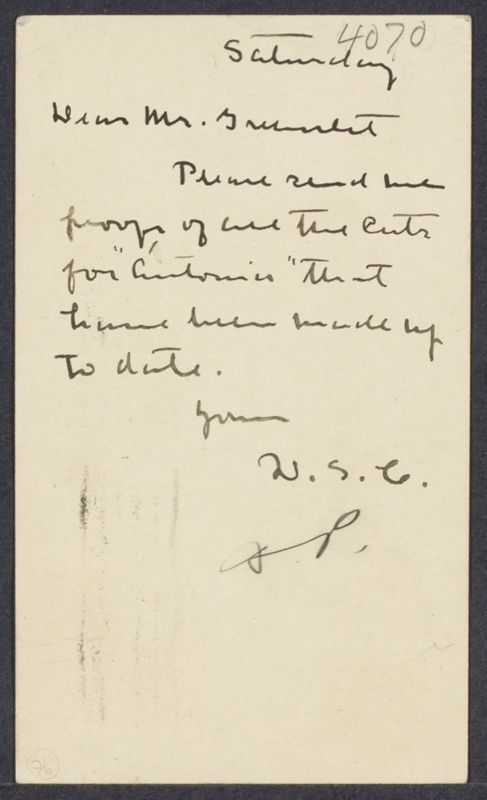 4070
Saturday
Dear Mr. Greenslet
Please send me
proofs of all the cuts
for "Antonia" that
have been made up
to date.
Yours
W. S. C.
P.
76